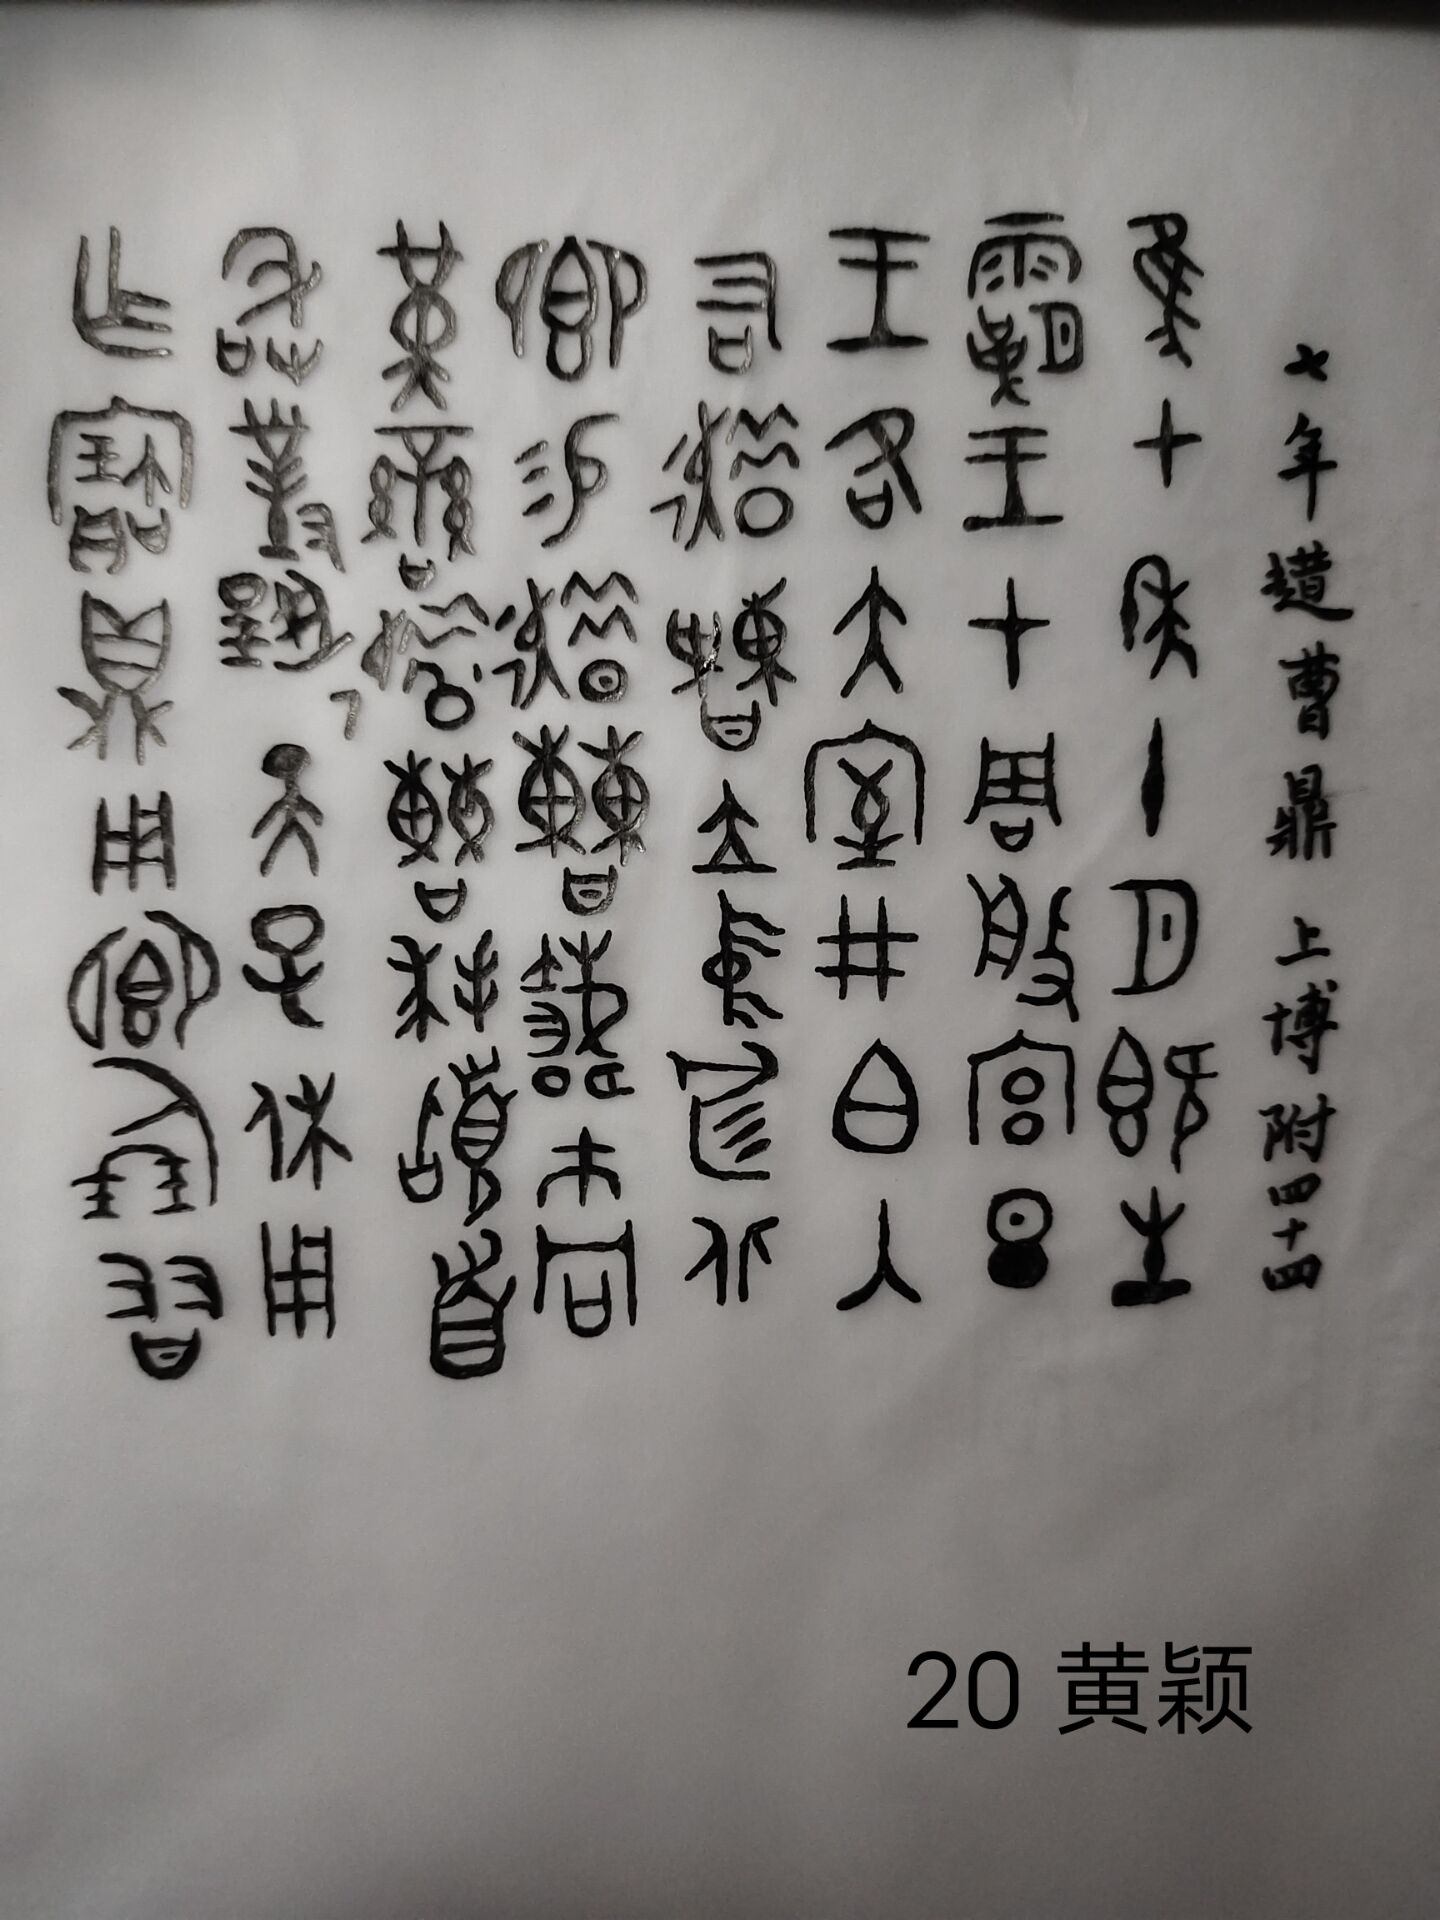 七年趞曹鼎 上博附四十四
隹七年十月既生
霸王才周般宮旦
王各大室井白入
右趞曹立中廷北
卿易趞曹載巿冋
黃䜌趞曹拜𩒨首
敢對揚天子休用
乍寶鼎用卿倗友
20 黄颖